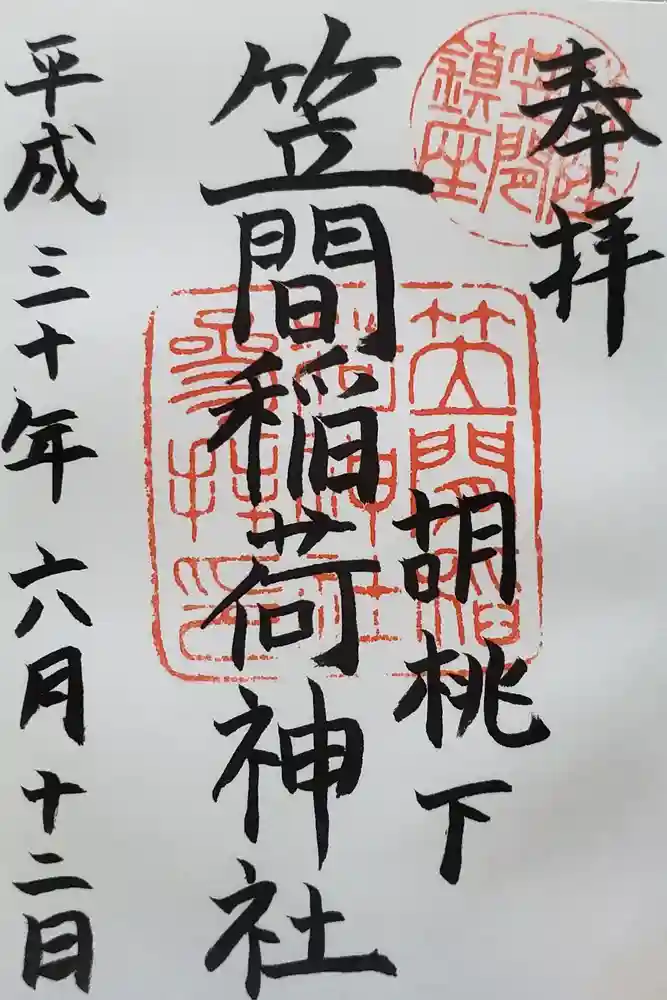 奉拝
胡桃下
笠間稲荷神社
平成三十年六月十二日
笠間稲
荷神社
参拝印